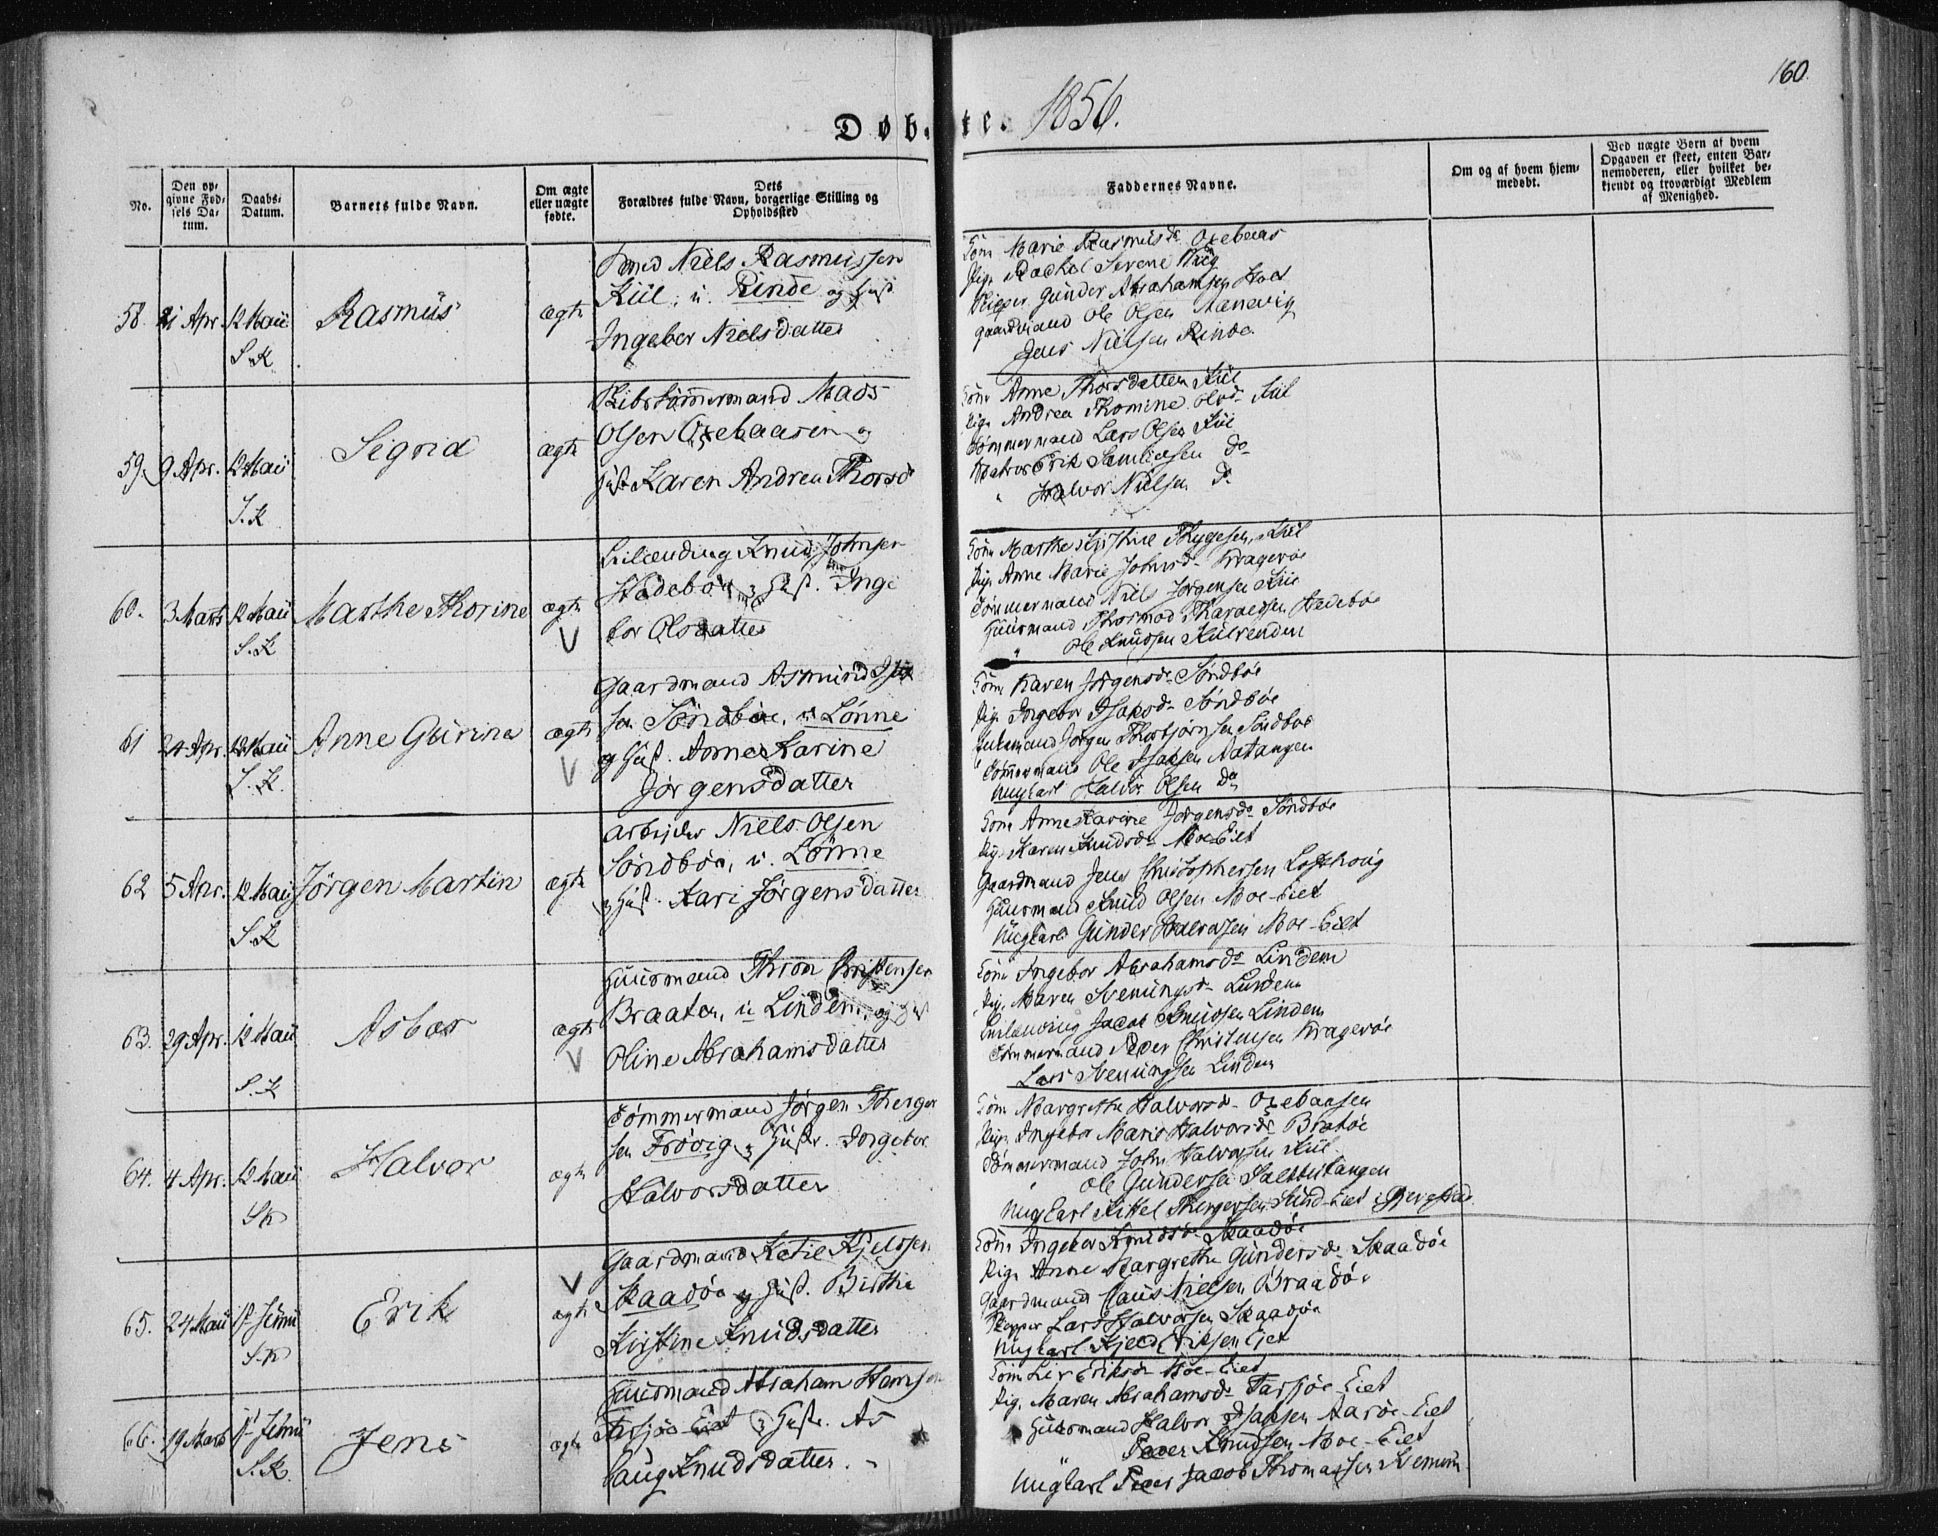 160.
Døbte. 1856.
No.
Den op-
givne Fød-
sels Da-
tum.
Daabs-
Datum.
Barnets fulde Navn.
Om ægte
eller uægte
fødte.
Dets
Forældres fulde Navn, borgerlige Stilling og
Opholdssted
Faddernes Navne.
Om og af hvem hjem-
medøbt.
Ved uægte Børn af hvem
Opgaven er skeet, enten Bar-
nemoderen, eller hvilket be-
kjendt og troværdigt Medlem
af Menighed.
58. 21 Apr. 12 Maii
S. K
Rasmus
ægte
Niels Rasmussen
Kiil, u. Rinde og Hust.
Ingebor Nielsdatter
Marie Rasmusd.
Pige Rachel Serene
Skipper Gunder Abrahamsen
Gaardmand Ole Olsen
Jens Nielsen Rinde.
59. 9 Apr. 12 Maii
S. K
Sigrid
ægte
Skibstømmermand Mads
Olsen Oxebaasen og
Hust. Karen Andrea Thorsd
Kone Anne Thorsdatter Kiil
Pige Andrea Thomine Olsd. Kiil
Tømmermand Lars Olsen Kiil
Matros Erik Do
" Halvor Nielsen Do
60. 3 Marts 12 Maii
S. K
Marthe Thorine
ægte
V
Knud Johnsen
Hedebøe og Hust. Inge
bor Olsdatter
Kone Marthe Kirstine Thygesen, Kiil
Pige Anne Marie Johnsd. Kragerøe
Tømmermand Niels Jørgensen Kiil
Huusmand Thormod Haraldsen Hedebøe
" Ole Knudsen
61 24 Apr. 12 Maii
S. K.
Anne Gurine
ægte
V
Gaardmand Asmund
sen Søndbøe, u. Lønne
og Hust. Anne Karine
Jørgensdatter
Kone Karen Jørgensd. Søndbøe
Pige Ingebor Isaksd. Søndbøe
Jørgen Thorbjørnsen Søndbøe
Tømmermand Ole Isaksen Aatangen
Ungkarl Halvor Olsen Do
62 5 Apr. 12 Maii
S. K
Jørgen Martin
ægte
Arbeider Niels Olsen
Søndbøe, u. Lønne
og Hust. Kari Jørgensdatter
Kone Anne Karine Jørgensd. Søndbøe
Pige Karen Knudsd. Moe-Eiet
Gaardmand Jens Christophersen
Huusmand Knud Olsen Moe-Eiet
Ungkarl Gunder Halvorsen Moe-Eiet
63. 29 Apr. 12 Maii
S. K
Asbør
ægte
V
Huusmand Thron Christensen
Braaten, u. Linden, og Hust
Oline Abrahamsdatter
Kone Ingebor Abrahamsd. Lindem
Pige Maren Svenungsd. Lindem
Jacob Knudsen Lindem
Tømmermand Peder Christensen Kragerøe
Lars Svenungsen Lindem
64. 4 Apr. 12 Maii
S. K
Halvor
ægte
Tømmermand Jørgen Therger
sen Frøvig og Hust. Ingebor
Halvorsdatter
Kone Margrethe Halvorsd. Oxebaasen
Pige Ingebor Marie Halvorsd. Bratøe
Tømmermand John Halvorsen Kiil
" Ole Gundersen
Ungkarl Kittel Thergersen Sund-Eiet
65. 24 Maii 1 Junii
S. K
Erik
V
ægte
Gaardmand Ketil Kjelsen
Skaadøe og Hust. Birthe
Kirstine Knudsdatter
Kone Ingebor Knudsd. Skaadøe
Pige Anne Margrethe Gundersd. Skaadøe
Gaardmand Claus Nielsen Braadøe
Skipper Lars Halvorsen Skaadøe
Ungkarl Kjeld Eriksen Eiet
66. 19 Marts 1 Junii
S. K.
Jens
ægte
Huusmand Abraham Hansen
Tarsjøe-Eiet og Hust. As
laug Knudsdatter.
Kone Liv Eriksd. Moe-Eiet
Pige Maren Abrahamsd. Tarsjøe-Eiet
Huusmand Halvor Isaksen Aarøe-Eiet
" Peder Knudsen Moe-Eiet
Ungkarl Peder Jacob Thomassen